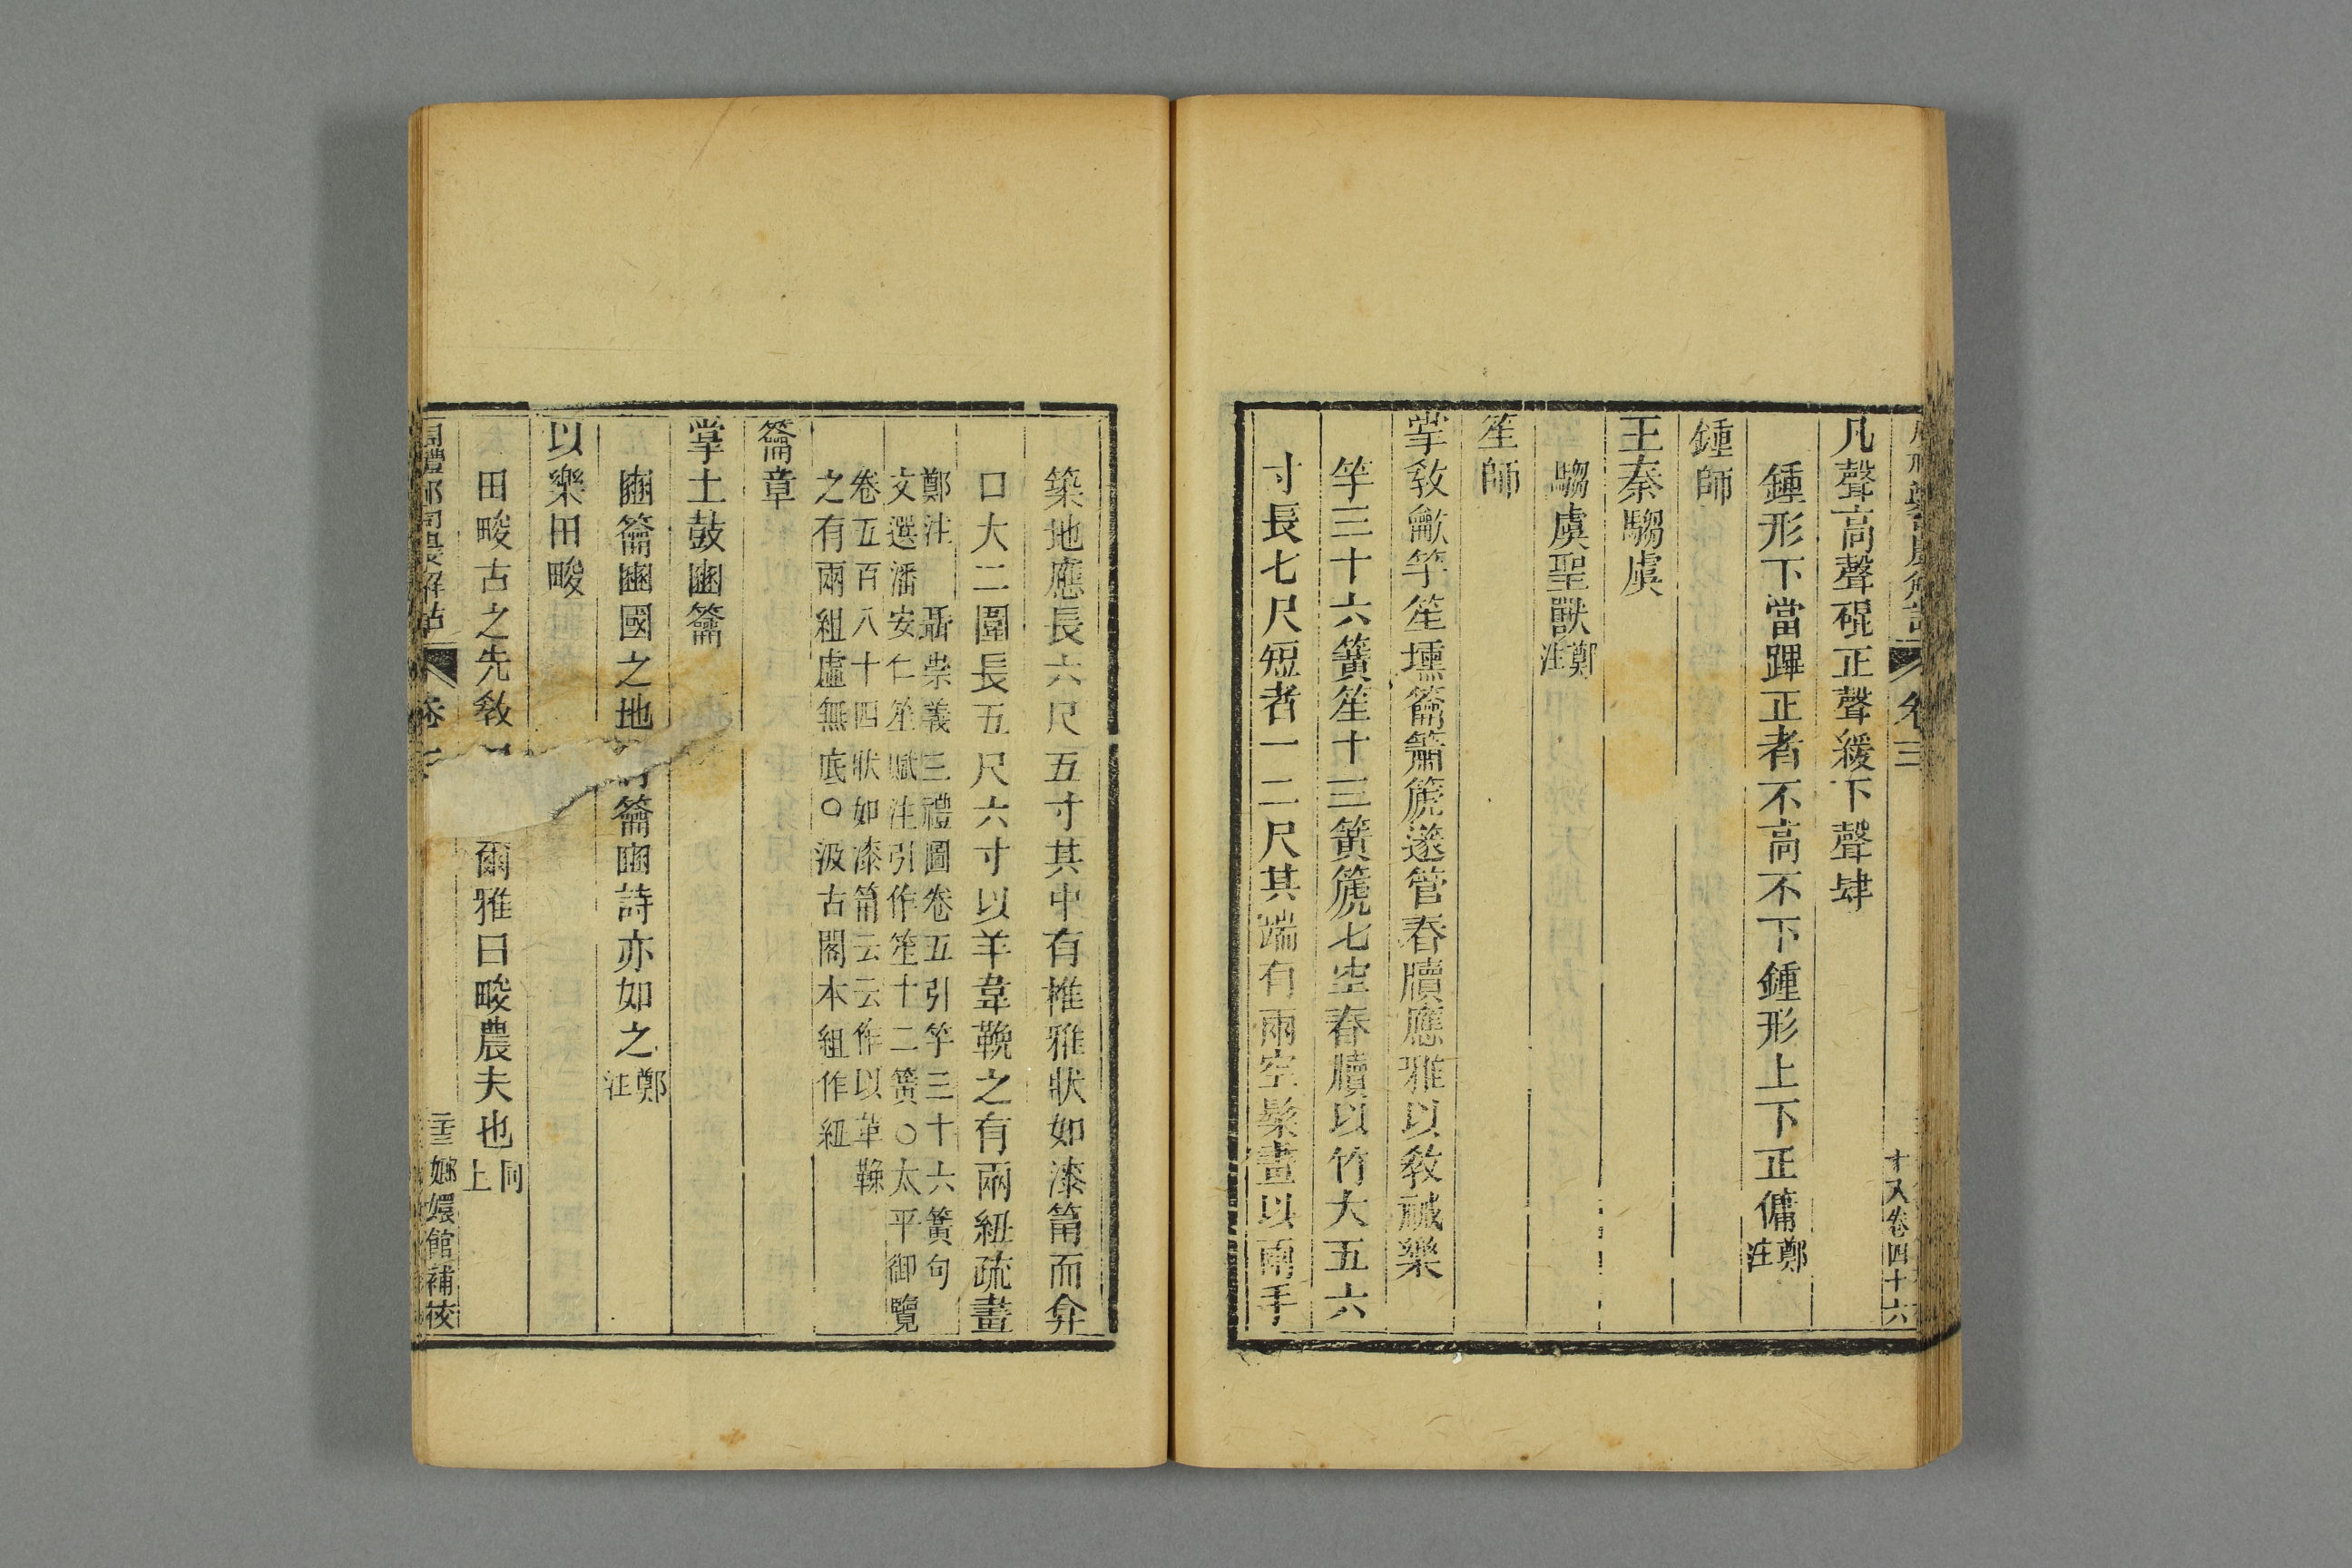 凡聲高聲䃂正聲緩下聲肆
鍾形下當踕正者不高不下鍾形上下正傭鄭注
鍾師
王奏騶虞
騶虞聖獸鄭注
笙師
掌敎龡竽笙壎籥簫箎篴管舂牘應雅以敎祴樂
竽三十六簧笙十三簧箎七空舂牘以竹大五六
寸長七尺短者一二尺其端有兩空髤畫以兩手
築地應長六尺五寸其中有椎雅狀如漆筩而弇
口大二圍長五尺六寸以羊韋鞔之有兩紐疏畫
鄭注 聶崇義三禮圖卷五引竽三十六簧句
文選潘安仁笙賦注引作笙十二簧○太平御覽
卷五百八十四狀如漆筩云云作以革鞔
之有兩組虛無底○汲古閣本組作紐
籥章
掌土鼓豳籥
豳籥豳國之地籥豳詩亦如之鄭注
以樂田畯
田畯古之先敎爾雅曰畯農夫也同上
嫏嬛館補校
卷三
十八卷四十六